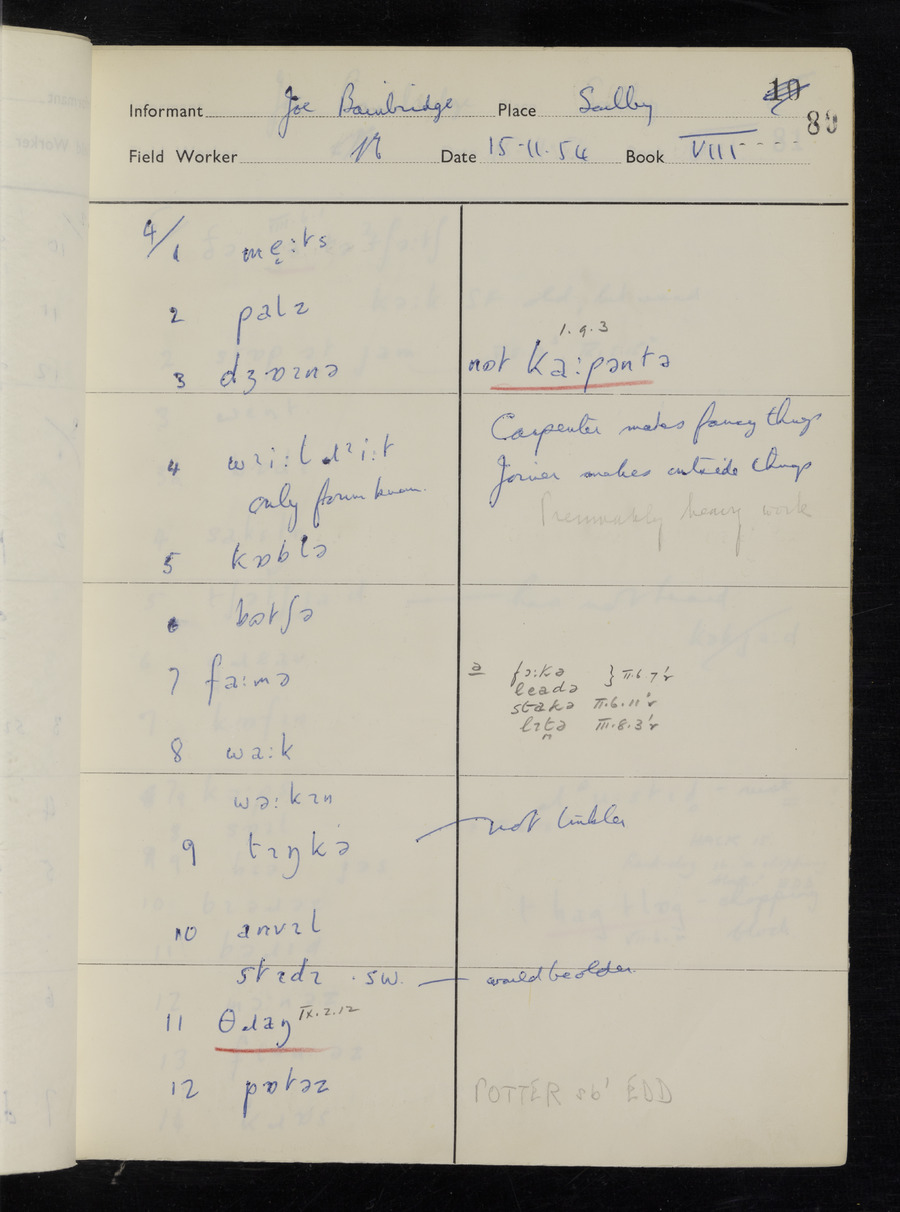 Informant Joe Bainbridge Place Soulby
10
89
Field Worker Date 15-11-54 Book VIII
4/1 mẹːts
2 palz
1.9.3
3 dʒɒɪnə not kaːpəntə
Carpenter makes fancy things
4 wɪiːl ɹɪiːt Joiner makes outside things
only form known. Presumably heavy work
5 kɒblə
6 bɒtʃə
7 faːmə
ə fɔːkə } II.6.7'r
leadə
stakə II.6.11'r
lɪtə III.8.3'r
8 waːk
wəːkɪn
9 tɪŋkə not tinkler
10 anvɪl
stɪdɪ . sw. would be older.
11 θɹaŋ IX.2.12
12 pɒtəz POTTER sb' EDD